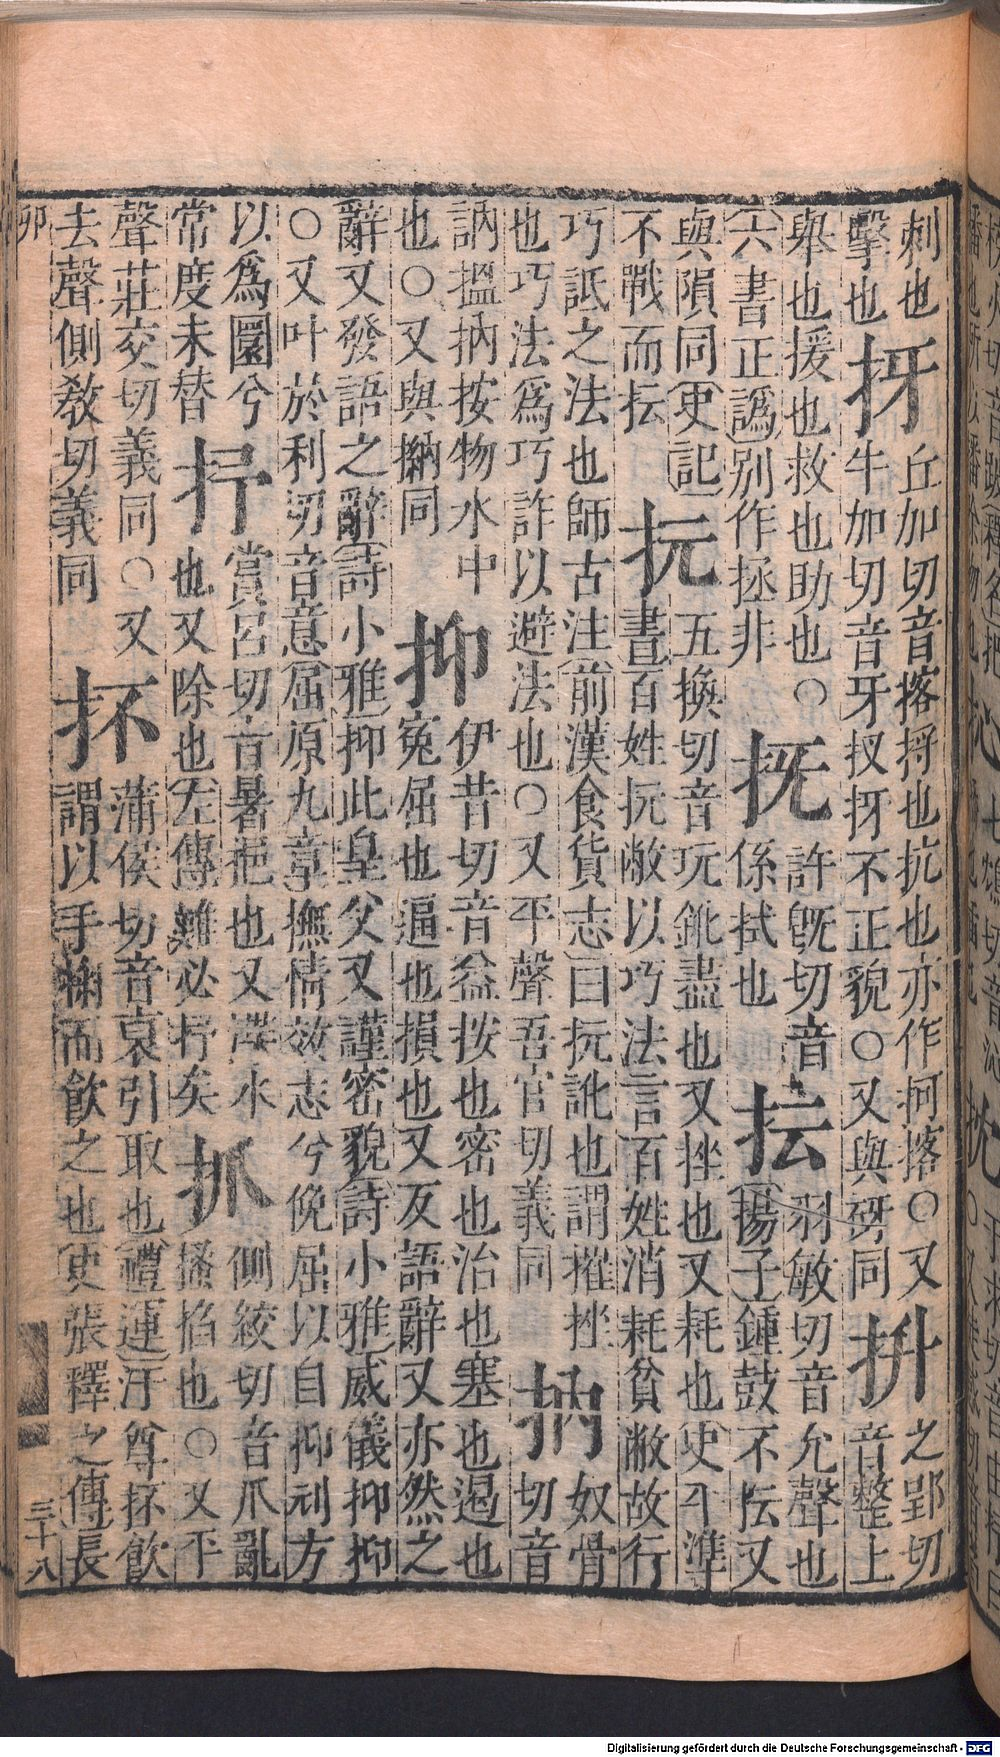 刺也㧎丘加切音揢捋也抗也亦作抲揢○又抍之郢切
擊也牛加切音牙扠㧎不正貌○又與砑同音整上
舉也援也救也助也○抚許旣切音抎羽敏切音允聲也
六書正譌別作拯非係拭也揚子鍾鼓不抎又
與隕同史記抏五換切音玩銚盡也又挫也又耗也史平準
不戰而抎書百姓抏敝以巧法言百姓消耗貧敝故行
巧詆之法也師古注前漢食貨志曰抏訛也謂摧挫抐奴骨
也巧法爲巧詐以避法也○又平聲吾官切義同切音
訥搵抐按物水中抑伊昔切音益按也密也治也塞也遏也
也○又與㨎同冤屈也逼也損也又反語辭又亦然之
辭又發語之辭詩小雅抑此皇父又謹密貌詩小雅威儀抑抑
○又叶於利切音意屈原九章撫情效志兮俛屈以自抑刓方
以爲圜兮抒賞呂切音暑挹也又渫水抓側絞切音爪亂
常度未替也又除也左傳難必抒矣搔掐也○又平
聲莊交切義同○又抔蒲侯切音裒引取也禮運汙尊抔飮
去聲側敎切義同謂以手掬而飮之也史張釋之傳長
卯
三十八
Digitalisierung gefördert durch die Deutsche Forschungsgemeinschaft - DFG